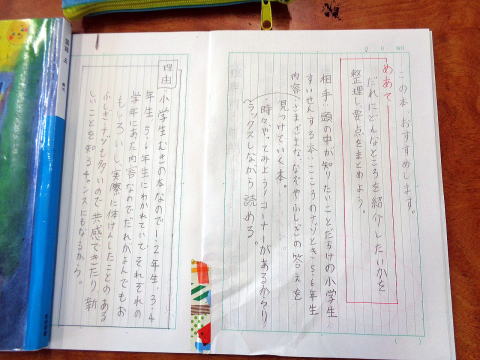 この本、おすすめします。
めあて
だれにどんなところを紹介したいかを
整理し、要点をまとめよう。
相手・頭の中が知りたいことだらけの小学生
すいせんする本・こころのナゾとき 5・6年生
内容・さまざまな、なぞやふしぎの答えを
見つけていく本。
時々、やってみよう!コーナーがあるからリ
ラックスしながら読める。
理由
小学生むきの本なので1・2年生・3・4
年生・5・6年生にわかれていて、それぞれの
学年にあた内容なのでだれがよんでもお
もしろいし、実際に体けんしたことのある
ふしぎ・ナゾも多いので共感できたり、新
しいことを知るチャンスにもなるから。
国語